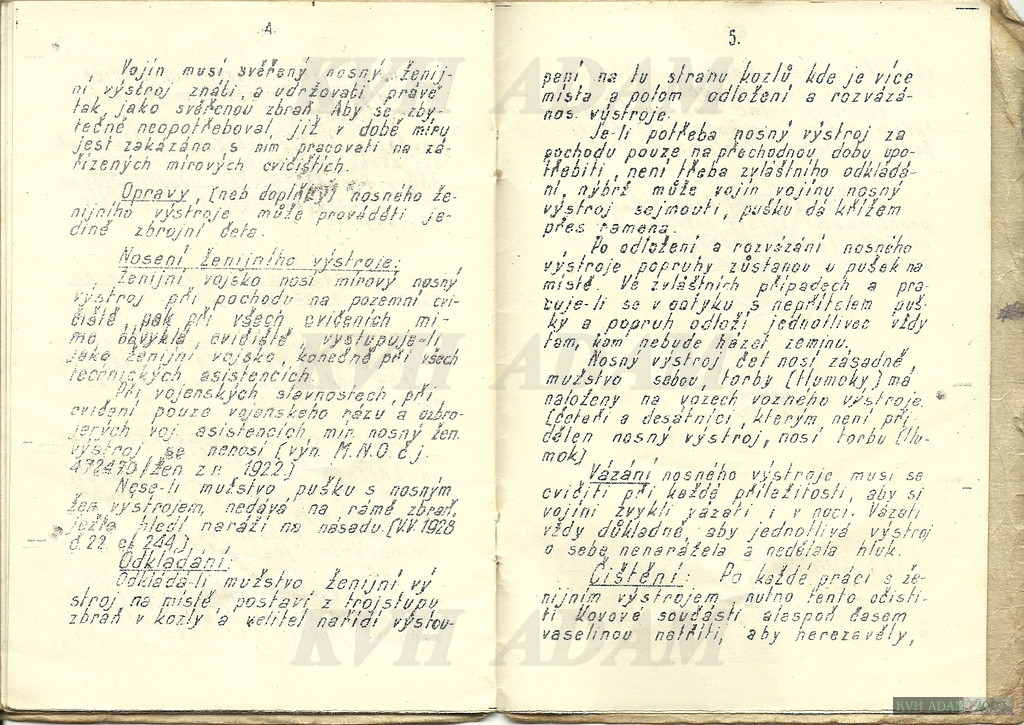 4.
Vojín musí svěřený nosný ženij-
ní výstroj znáti a udržovati právě
tak, jako svěřenou zbraň. Aby se zby-
tečně neopotřeboval, již v době míru
jest zakázáno s ním pracovati na za-
řízených mírových cvičištích.
Opravy, (neb doplňky) nosného že-
nijního výstroje může prováděti je-
dině zbrojní četa.
Nosení ženijního výstroje:
Ženijní vojsko nosí mírový nosný
výstroj při pochodu na pozemní cvi-
čiště, pak při všech cvičeních mi-
mo obvyklá cvičiště, vystupuje-li
jako ženijní vojsko, konečně při všech
technických asistencích.
Při vojenských slavnostech, při
cvičení pouze vojenského rázu a ozbro-
jených voj. asistencích mír. nosný žen.
výstroj se nenosí (výn. M.N.O. č.j.
472470/žen. z r. 1922.)
Nese-li mužstvo pušku s nosným
žen. výstrojem, nedává na rámě zbraň,
ježto hledí naráží na násadu. (V.V. 1928
č. 22. čl. 244.)
Odkládání:
Odkládá-li mužstvo ženijní vý
stroj na místě, postaví z trojstupu
zbraň v kozly a velitel nařídí výstou-
5.
pení na tu stranu kozlů kde je více
místa a potom odložení a rozvázá-
nos. výstroje.
Je-li potřeba nosný výstroj za
pochodu pouze na přechodnou dobu upo-
třebiti, není třeba zvláštního odkládá-
ní, nýbrž může vojín vojínu nosný
výstroj sejmouti, pušku dá křížem
přes ramena.
Po odložení a rozvázání nosného
výstroje popruhy zůstanou u pušek na
místě. Ve zvláštních případech a pra-
cuje-li se v dotyku s nepřítelem puš-
ky a popruh odloží jednotlivec vždy
tam, kam nebude házet zeminu.
Nosný výstroj čet nosí zásadně
mužstvo sebou, torby (tlumoky) má
naloženy na vozech vozného výstroje.
(četaři a desátníci, kterým není při-
dělen nosný výstroj, nosí torbu (tlu-
mok)
Vázání nosného výstroje musí se
cvičiti při každé příležitosti, aby si
vojíni zvykli vázati i v noci. Vázati
vždy důkladně, aby jednotlivá výstroj
o sebe nenarážela a nedělala hluk.
Čištění: Po každé práci s že-
nijním výstrojem nutno tento očisti-
ti kovové součásti alespoň časem
vaselinou natříti, aby nerezavěly,
KVH ADAM
KVH ADAM
KVH ADAM
KVH ADAM
KVH ADAM